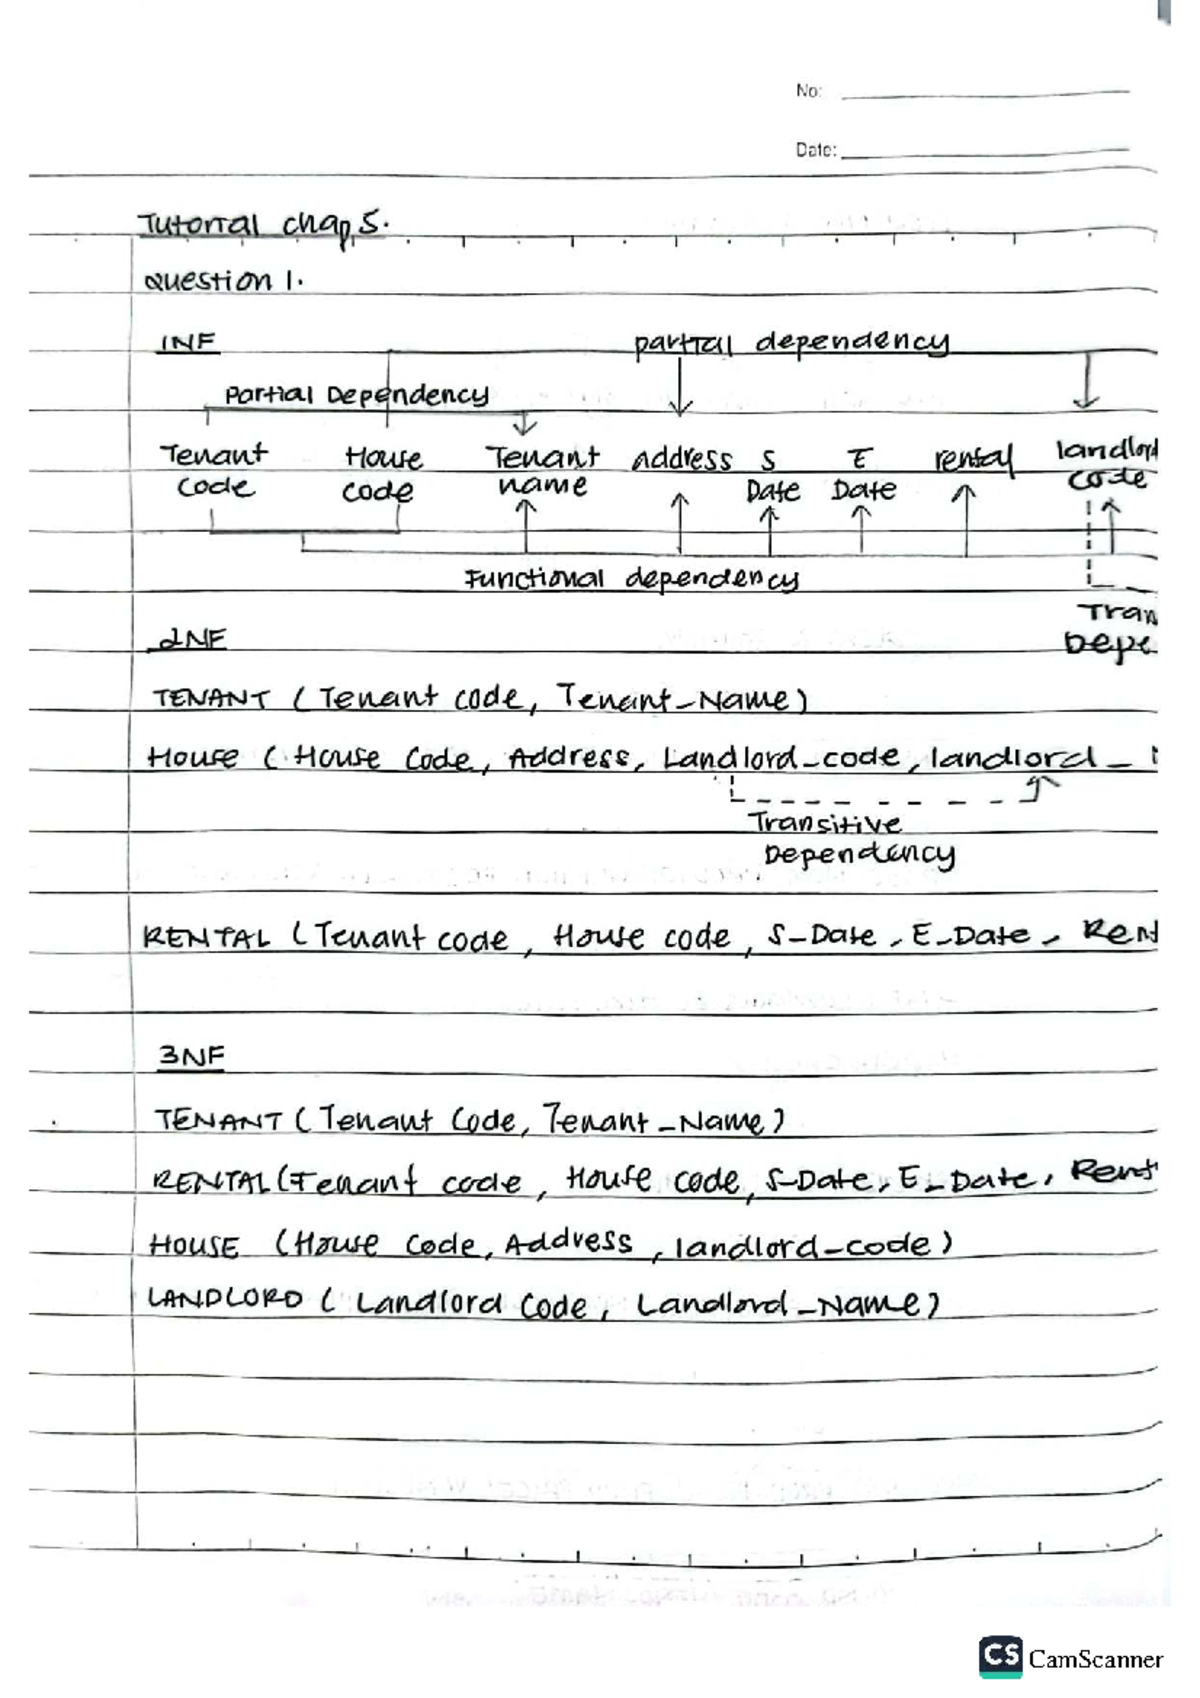 No:
Date:
Tutorial chap 5.
Question 1.
1NF
partial dependency
Partial Dependency
Tenant House Tenant address S E rental landlord
code code name Date Date code
Functional dependency
Tran
Depe
2NF
TENANT (Tenant code, Tenant_Name)
House (House Code, Address, Landlord_code, landlord_
Transitive
Dependency
RENTAL (Tenant code, House code, S_Date, E_Date, Rent
3NF
TENANT (Tenant Code, Tenant_Name)
RENTAL (Tenant code, House code, S_Date, E_Date, Rent
HOUSE (House Code, Address, landlord_code)
LANDLORD (Landlord Code, Landlord_Name)
CS CamScanner